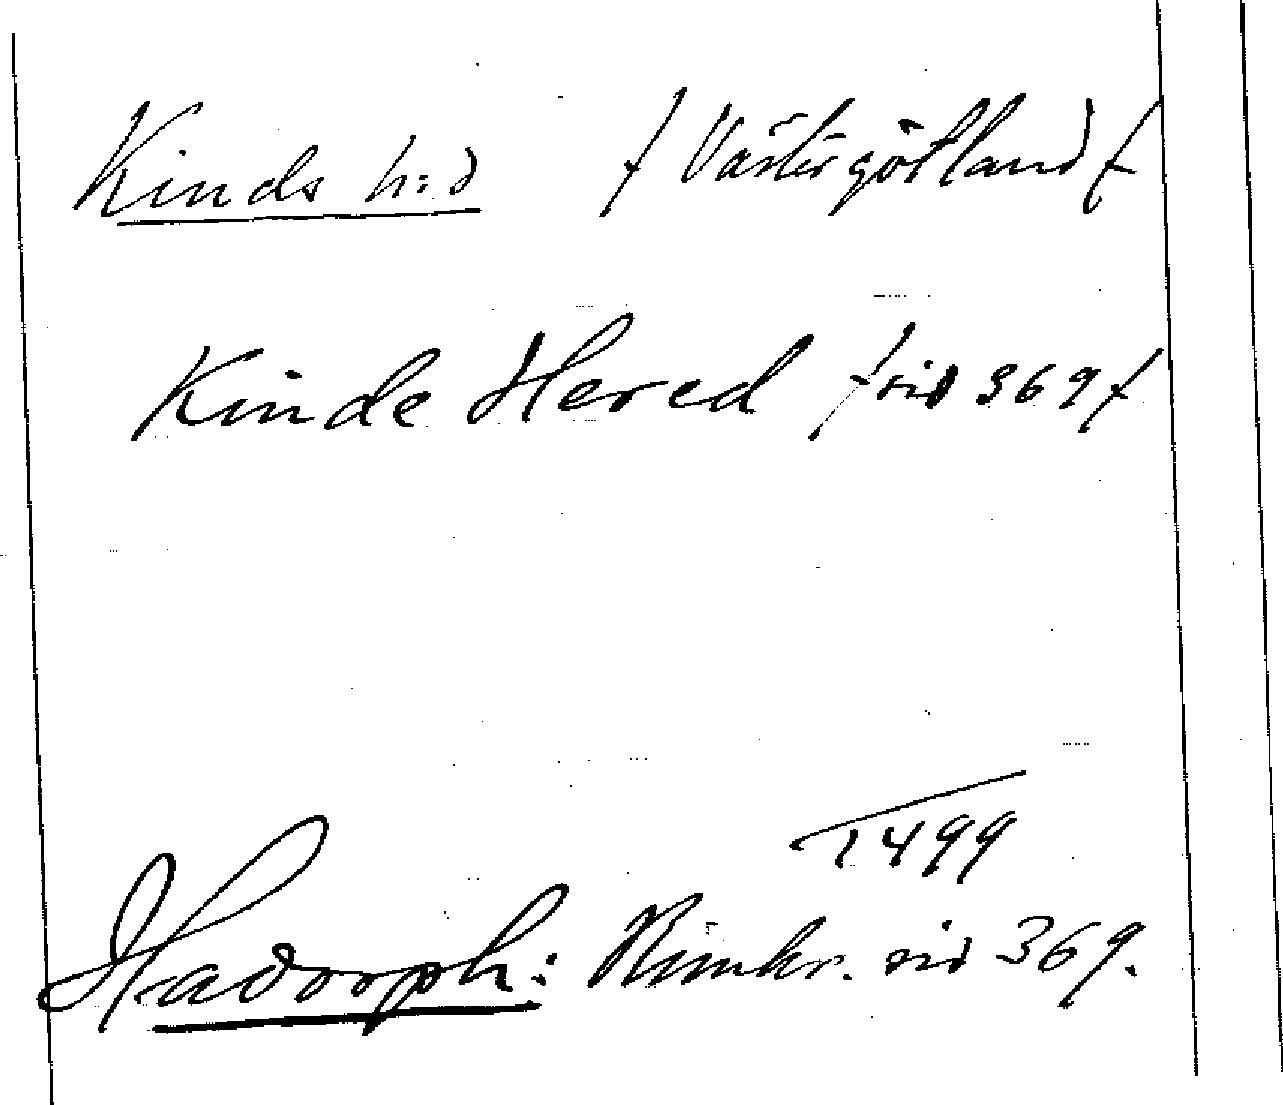 Kinds h:d / Västergötland /
Kinde Hered / sid 369 /
1499
Hadorph: Rimkr. sid 369.